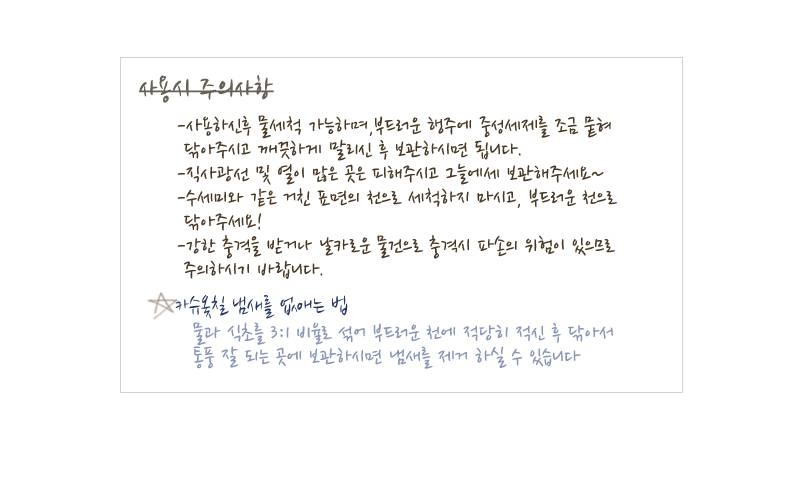 사용시 주의사항
-사용하신후 물세척 가능하며,부드러운 행주에 중성세제를 조금 뭍혀
닦아주시고 깨끗하게 말리신 후 보관하시면 됩니다.
-직사광선 및 열이 많은 곳은 피해주시고 그늘에서 보관해주세요~
-수세미와 같은 거친 표면의 천으로 세척하지 마시고, 부드러운 천으로
닦아주세요!
-강한 충격을 받거나 날카로운 물건으로 충격시 파손의 위험이 있으므로
주의하시기 바랍니다.
카슈옻칠 냄새를 없애는 법
물과 식초를 3:1 비율로 섞어 부드러운 천에 적당히 적신 후 닦아서
통풍 잘 되는 곳에 보관하시면 냄새를 제거 하실 수 있습니다